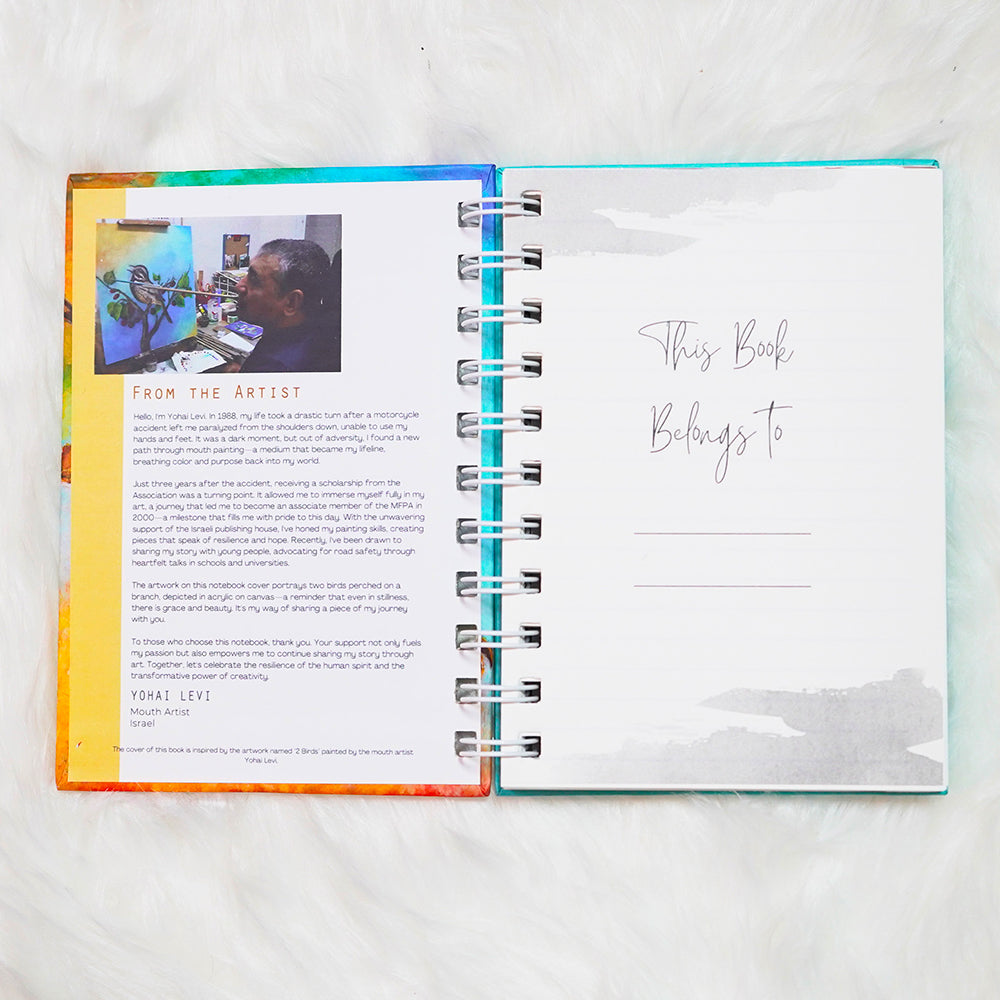 FROM THE ARTIST
Hello, I'm Yohai Levi. In 1988, my life took a drastic turn after a motorcycle
accident left me paralyzed from the shoulders down, unable to use my
hands and feet. It was a dark moment, but out of adversity, I found a new
path through mouth painting—a medium that became my lifeline,
breathing color and purpose back into my world.
Just three years after the accident, receiving a scholarship from the
Association was a turning point. It allowed me to immerse myself fully in my
art, a journey that led me to become an associate member of the MFPA in
2000—a milestone that fills me with pride to this day. With the unwavering
support of the Israeli publishing house, I've honed my painting skills, creating
pieces that speak of resilience and hope. Recently, I've been drawn to
sharing my story with young people, advocating for road safety through
heartfelt talks in schools and universities.
The artwork on this notebook cover portrays two birds perched on a
branch, depicted in acrylic on canvas—a reminder that even in stillness,
there is grace and beauty. It's my way of sharing a piece of my journey
with you.
To those who choose this notebook, thank you. Your support not only fuels
my passion but also empowers me to continue sharing my story through
art. Together, let's celebrate the resilience of the human spirit and the
transformative power of creativity.
YOHAI LEVI
Mouth Artist
Israel
The cover of this book is inspired by the artwork named '2 Birds' painted by the mouth artist
Yohai Levi.
This Book
Belongs To